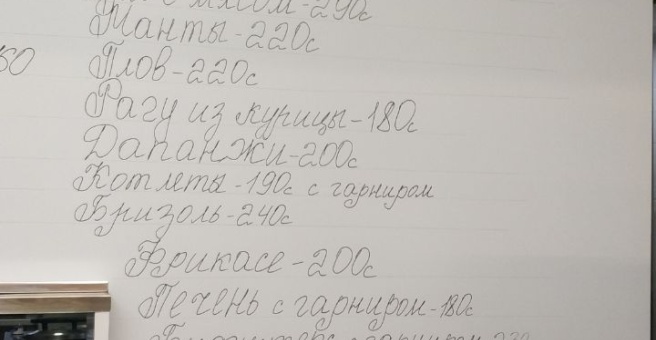 с мясом-290с
Манты-220с
50
Плов-220с
Рагу из курицы-180с
Дапанжи-200с
Котлеты-190с с гарниром
Бризоль-240с
Фрикасе-200с
Печень с гарниром-180с